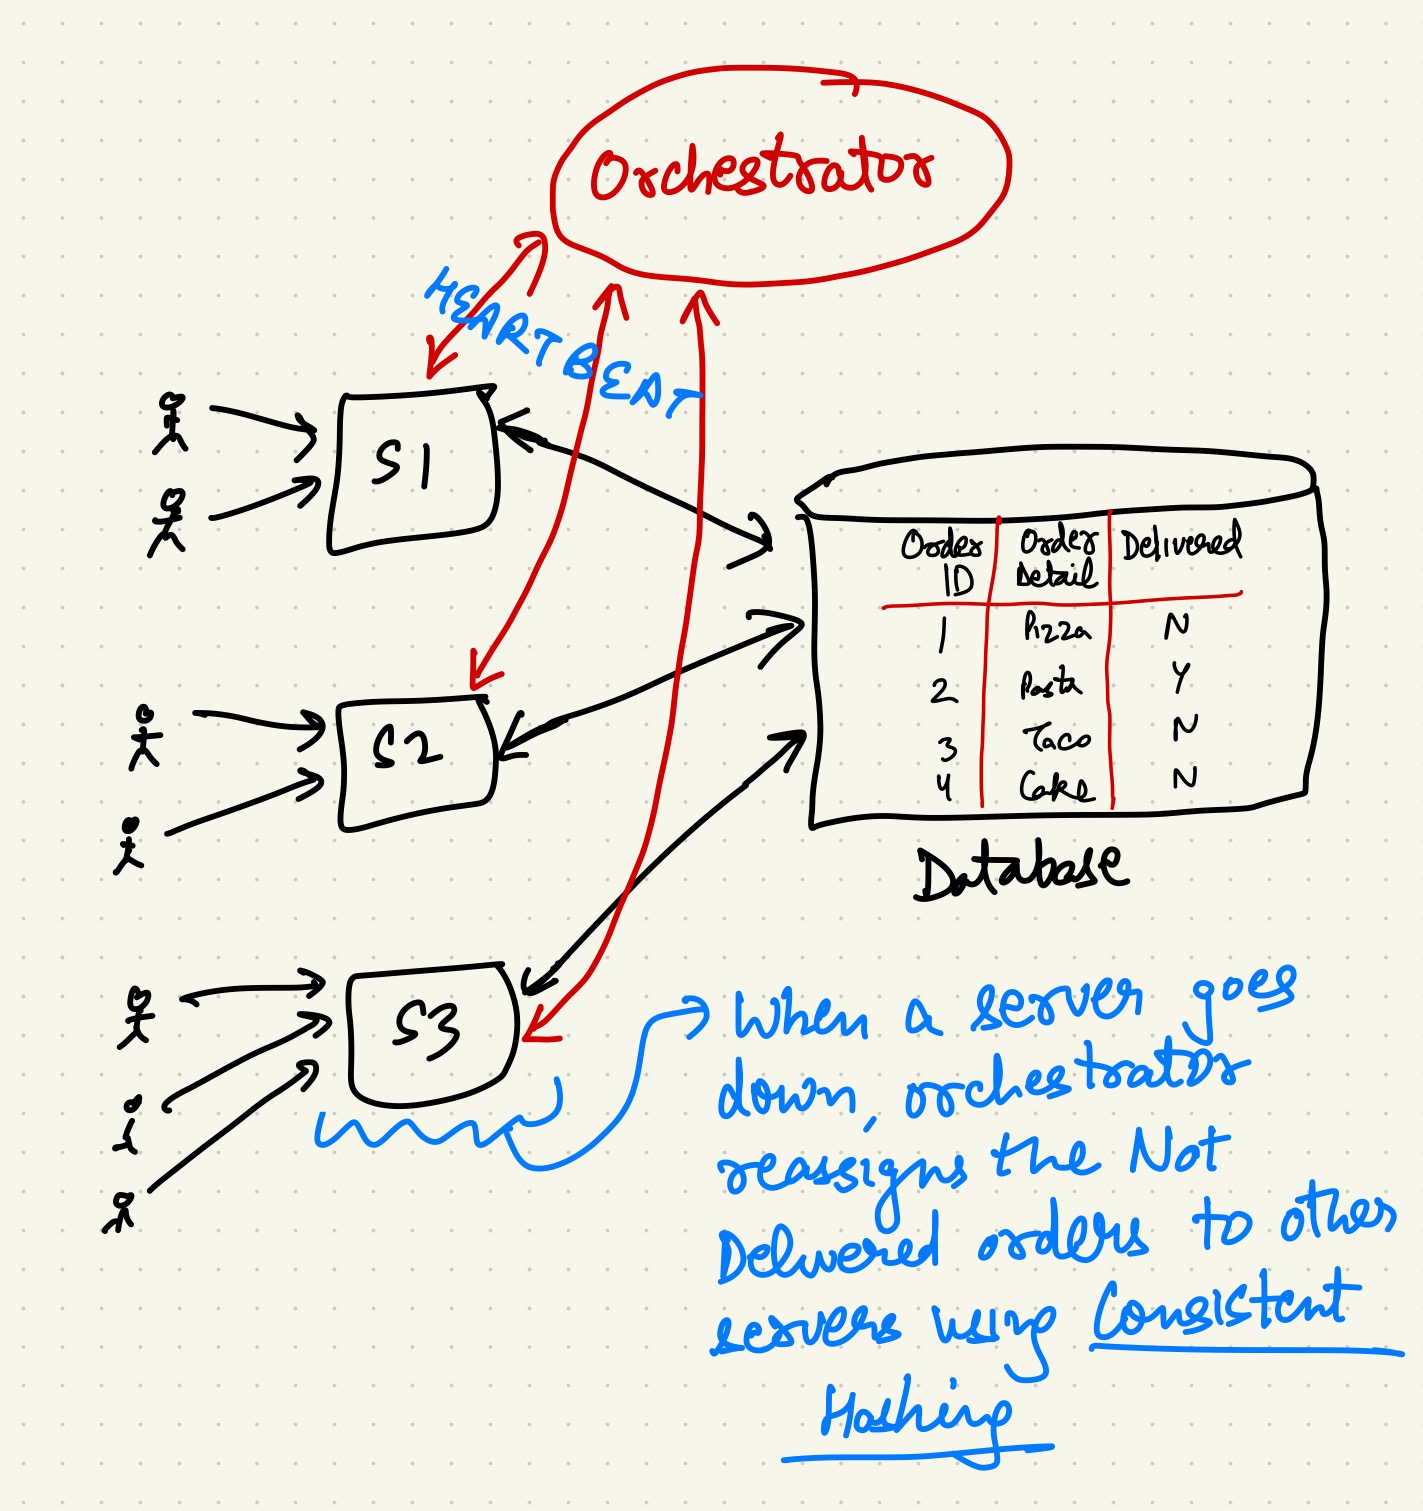 Orchestrator
HEARTBEAT
S1
S2
S3
Order ID | Order Detail | Delivered
1 | Pizza | N
2 | Pasta | Y
3 | Taco | N
4 | Cake | N
Database
When a server goes
down, orchestrator
reassigns the Not
Delivered orders to other
servers using Consistent
Hashing